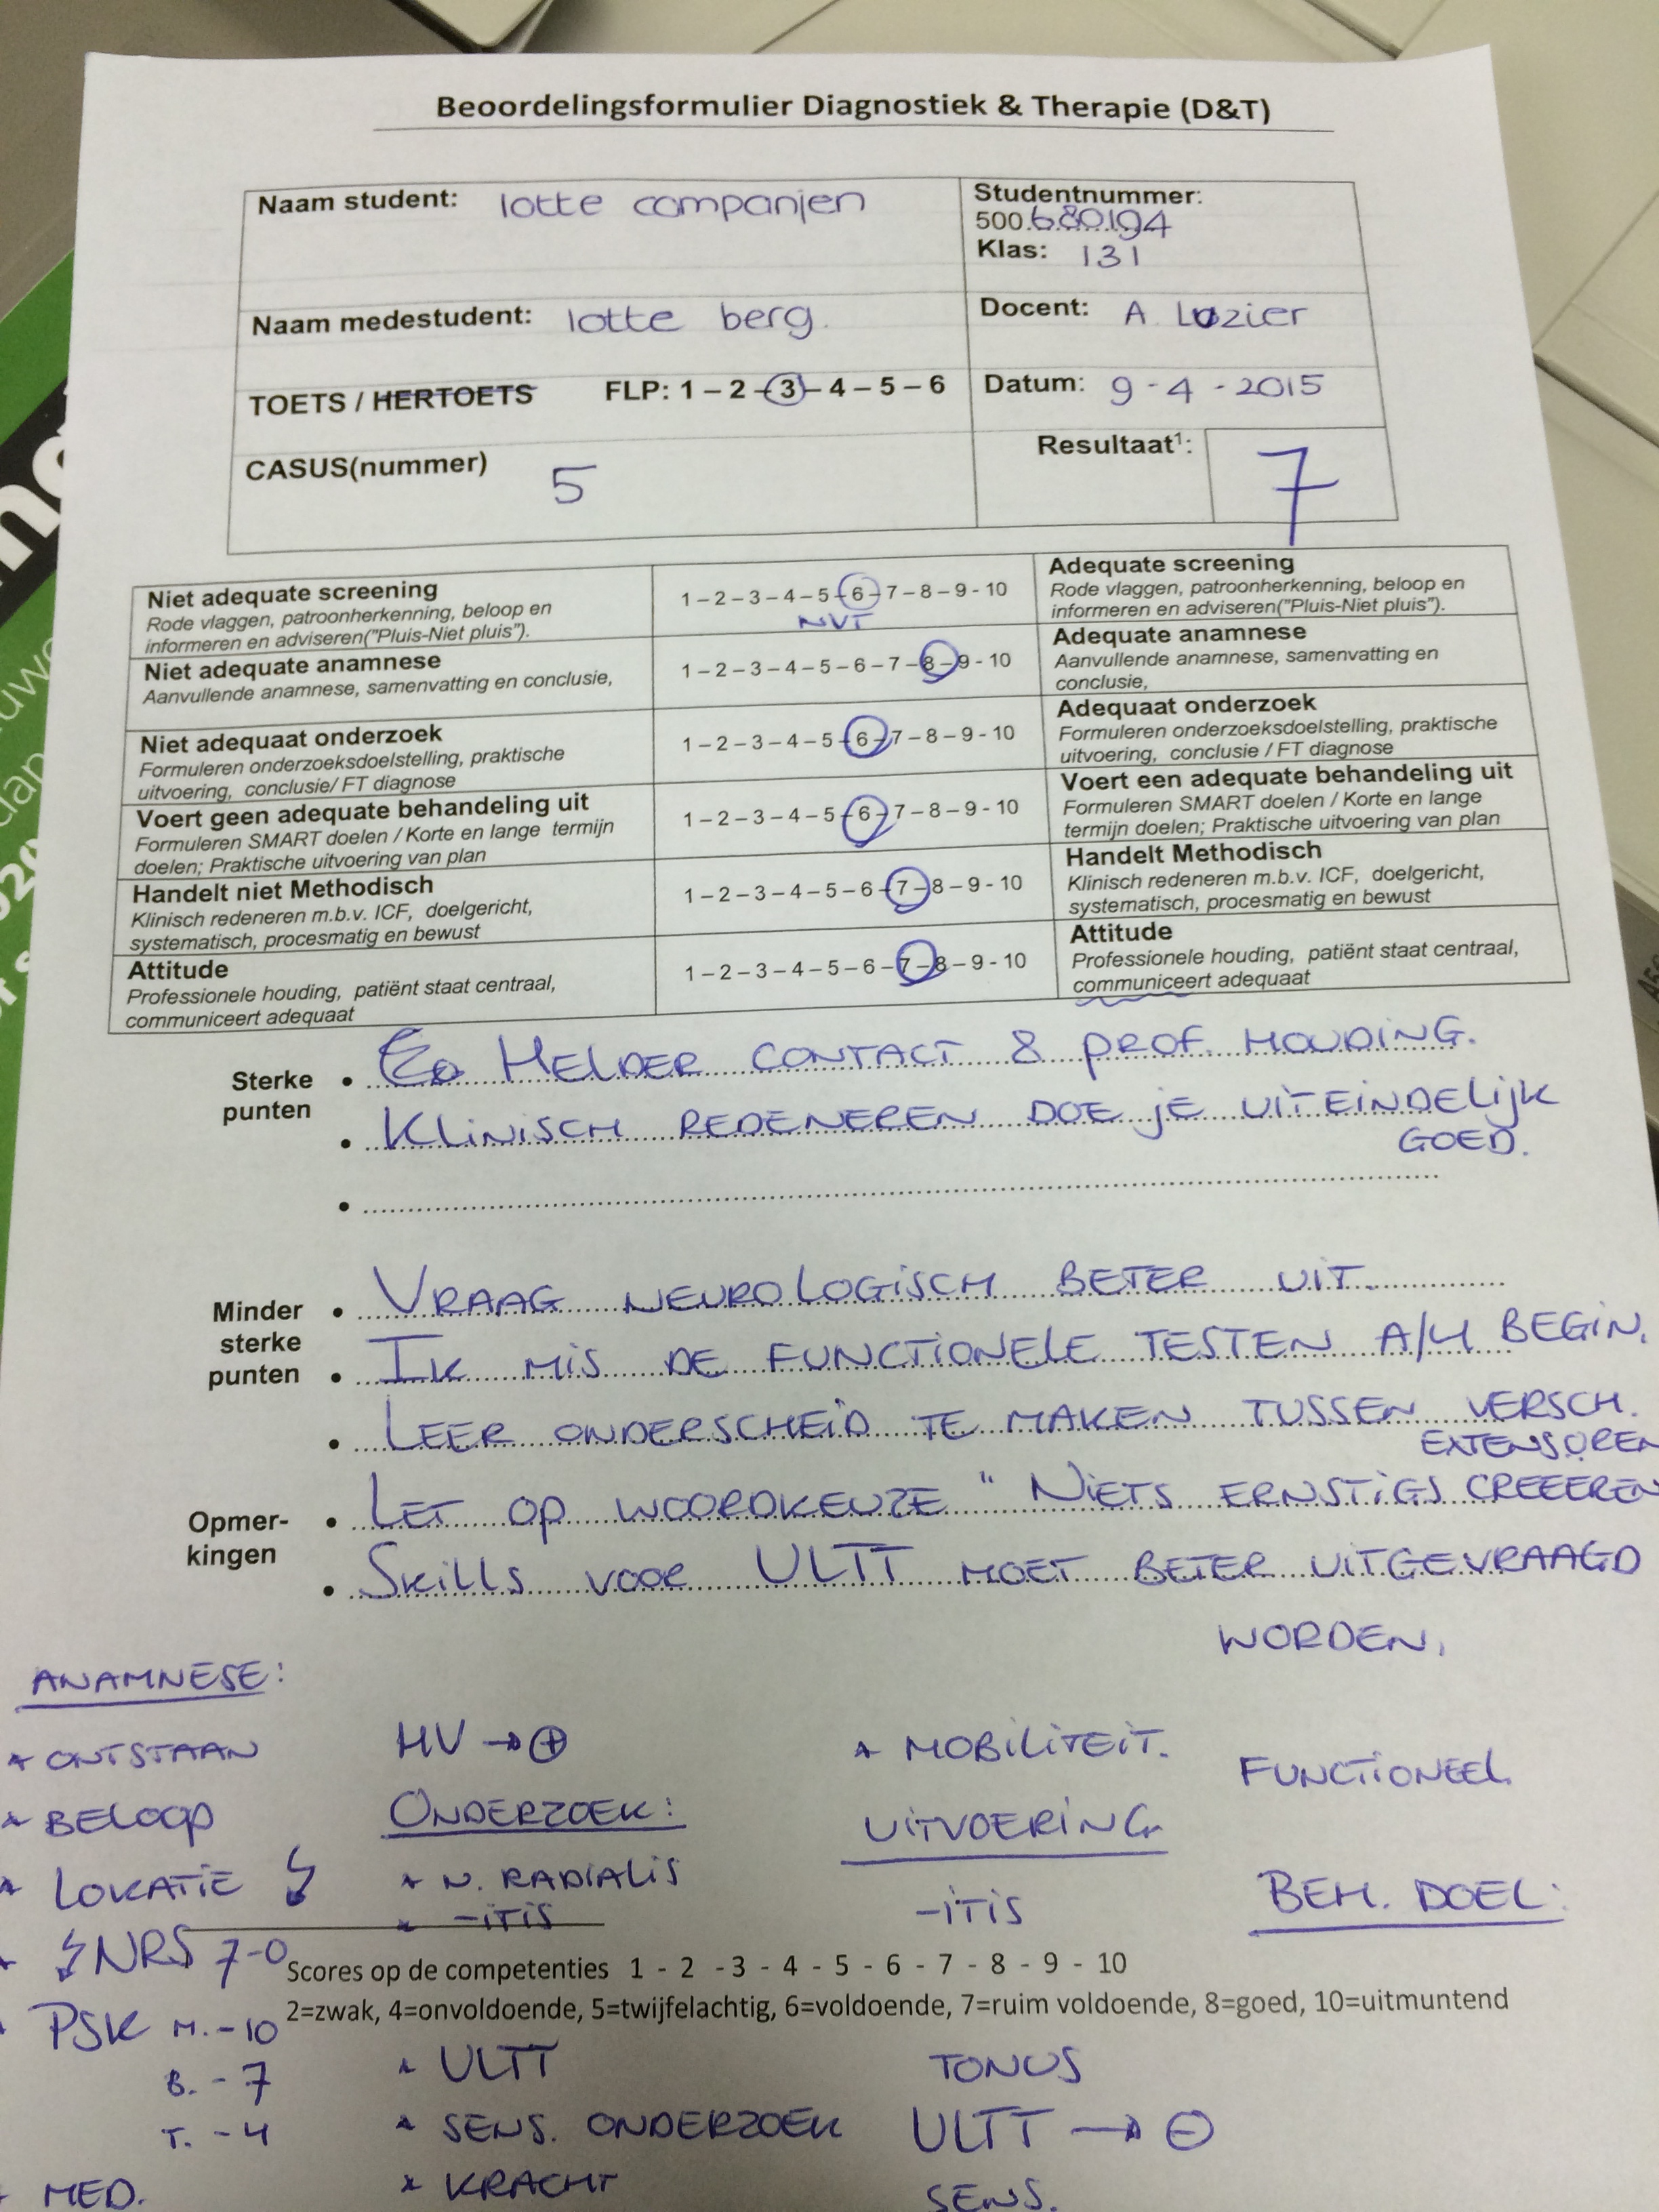 Beoordelingsformulier Diagnostiek & Therapie (D&T)
Naam student: lotte companjen
Studentnummer:
500.680194
Klas: 131
Naam medestudent: lotte berg.
Docent: A. Lozier
TOETS / HERTOETS FLP: 1 – 2 – 3 – 4 – 5 – 6
Datum: 9 - 4 - 2015
CASUS(nummer) 5
Resultaat¹: 7
Niet adequate screening
Rode vlaggen, patroonherkenning, beloop en
informeren en adviseren("Pluis-Niet pluis").
1 – 2 – 3 – 4 – 5 – 6 – 7 – 8 – 9 - 10
NVT
Adequate screening
Rode vlaggen, patroonherkenning, beloop en
informeren en adviseren("Pluis-Niet pluis").
Niet adequate anamnese
Aanvullende anamnese, samenvatting en conclusie,
1 – 2 – 3 – 4 – 5 – 6 – 7 – 8 – 9 - 10
Adequate anamnese
Aanvullende anamnese, samenvatting en
conclusie,
Niet adequaat onderzoek
Formuleren onderzoeksdoelstelling, praktische
uitvoering, conclusie/ FT diagnose
1 – 2 – 3 – 4 – 5 – 6 – 7 – 8 – 9 - 10
Adequaat onderzoek
Formuleren onderzoeksdoelstelling, praktische
uitvoering, conclusie / FT diagnose
Voert geen adequate behandeling uit
Formuleren SMART doelen / Korte en lange termijn
doelen; Praktische uitvoering van plan
1 – 2 – 3 – 4 – 5 – 6 – 7 – 8 – 9 - 10
Voert een adequate behandeling uit
Formuleren SMART doelen / Korte en lange
termijn doelen; Praktische uitvoering van plan
Handelt niet Methodisch
Klinisch redeneren m.b.v. ICF, doelgericht,
systematisch, procesmatig en bewust
1 – 2 – 3 – 4 – 5 – 6 – 7 – 8 – 9 - 10
Handelt Methodisch
Klinisch redeneren m.b.v. ICF, doelgericht,
systematisch, procesmatig en bewust
Attitude
Professionele houding, patiënt staat centraal,
communiceert adequaat
1 – 2 – 3 – 4 – 5 – 6 – 7 – 8 – 9 - 10
Attitude
Professionele houding, patiënt staat centraal,
communiceert adequaat
Sterke punten
• HELDER CONTACT & PROF. HOUDING.
• KLINISCH REDENEREN DOE JE UITEINDELIJK
GOED.
•
Minder sterke punten
• VRAAG NEUROLOGISCH BETER UIT.
• IK MIS DE FUNCTIONELE TESTEN A/H BEGIN.
• LEER ONDERSCHEID TE MAKEN TUSSEN VERSCH.
EXTENSOREN
Opmerkingen
• LET OP WOORDKEUZE "NIETS ERNSTIGS CREEEREN
• SKILLS VOOR ULTT MOET BETER UITGEVRAAGD
WORDEN.
ANAMNESE:
* ONTSTAAN
* BELOOP
* LOKATIE
NRS 7-0
PSK M. - 10
B. - 7
T. - 4
MED.
HV → ⊕
ONDERZOEK:
* N. RADIALIS
* -ITIS
* ULTT
* SENS. ONDERZOEK
* KRACHT
* MOBILITEIT.
UITVOERING
-ITIS
TONUS
ULTT → ⊖
SENS.
FUNCTIONEEL
BEH. DOEL:
Scores op de competenties 1 - 2 - 3 - 4 - 5 - 6 - 7 - 8 - 9 - 10
2=zwak, 4=onvoldoende, 5=twijfelachtig, 6=voldoende, 7=ruim voldoende, 8=goed, 10=uitmuntend